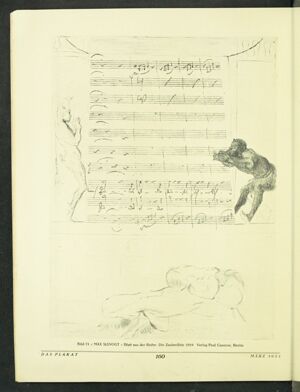 Bild 21 • MAX SLEVOGT • Blatt aus der Reihe: Die Zauberflöte 1920 Verlag Paul Cassirer, Berlin
DAS PLAKAT
160
MÄRZ 1921